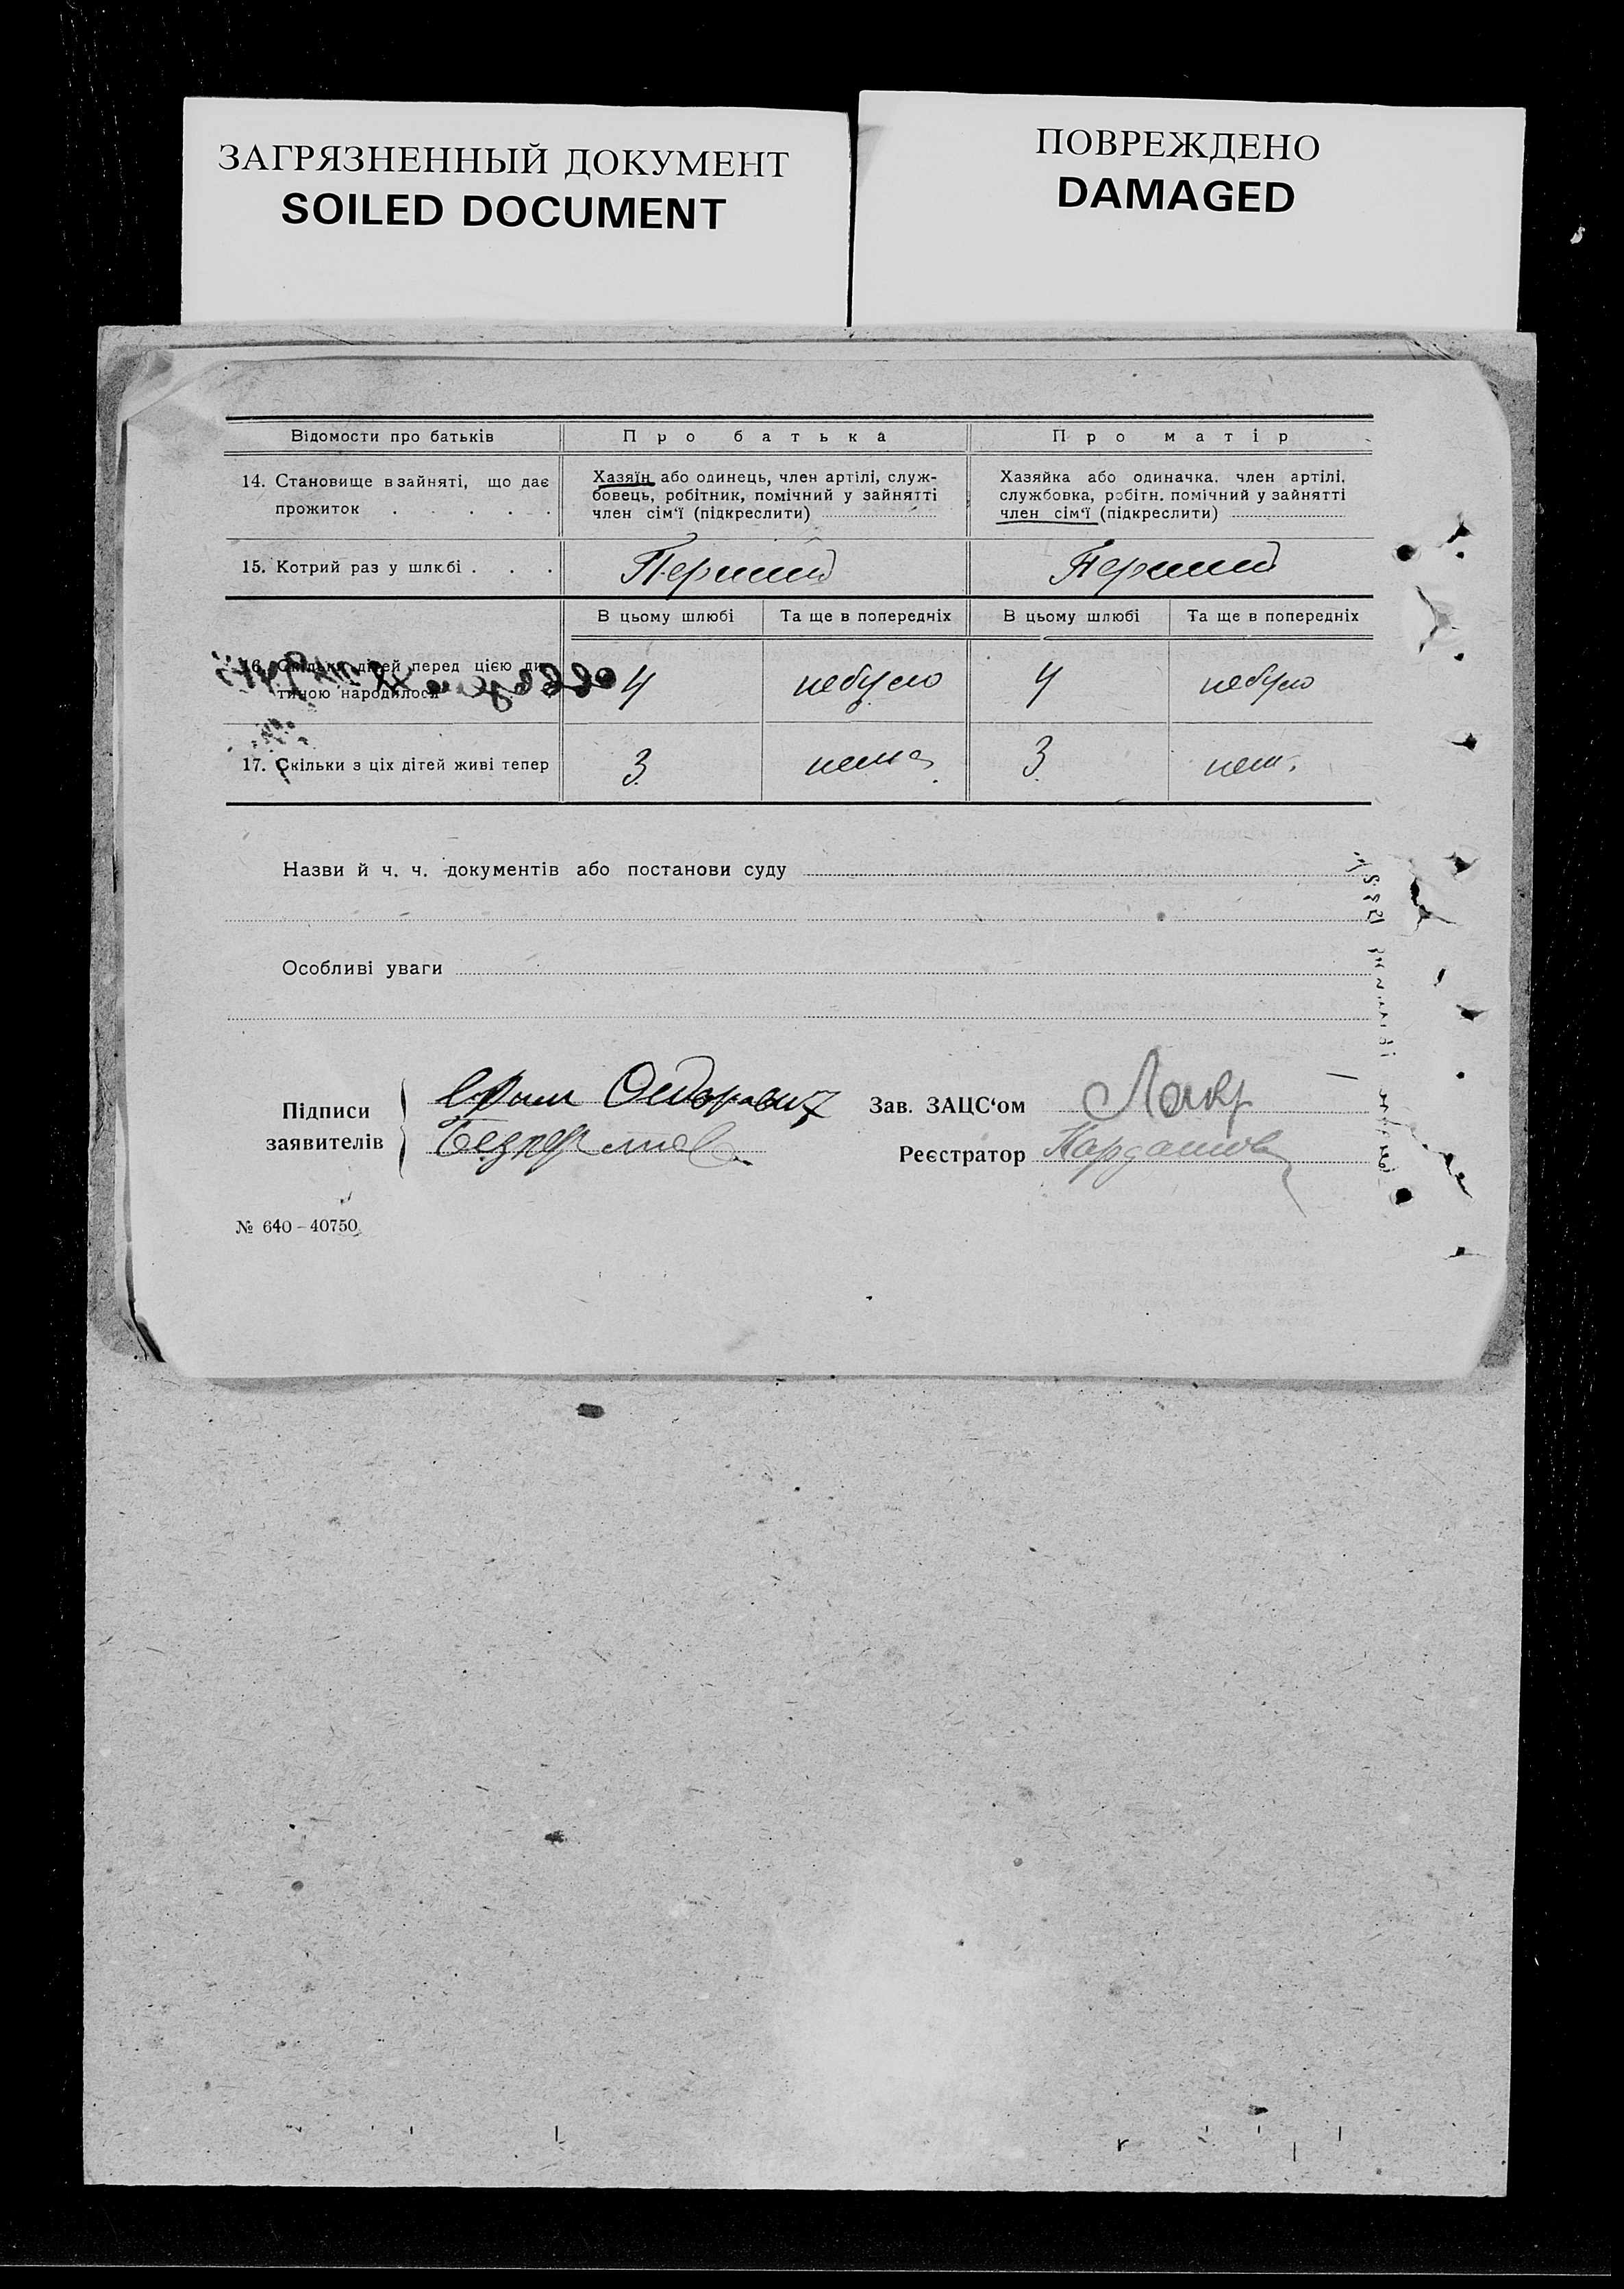 ЗАГРЯЗНЕННЫЙ ДОКУМЕНТ
SOILED DOCUMENT
ПОВРЕЖДЕНО
DAMAGED
Відомости про батьків Про батька Про матір
14. Становище в зайняті, що дає прожиток . . . . .
Хазяїн або одинець, член артілі, служ-
бовець, робітник, помічний у зайнятті
член сім‘ї (підкреслити)
Хазяйка або одиначка, член артілі,
службовка, робітн. помічний у зайнятті
член сім‘ї (підкреслити)
15. Котрий раз у шлюбі . . . Перший Перший
В цьому шлюбі Та ще в попередніх В цьому шлюбі Та ще в попередніх
16. Скільки дітей перед цією ди-
тиною народилося 4 небуло 4 небуло
17. Скільки з ціх дітей живі тепер 3 нема 3 нем.
Назви й ч. ч. документів або постанови суду
Особливі уваги
Підписи
заявителів
Зав. ЗАЦС‘ом
Реєстратор
№ 640 – 40750